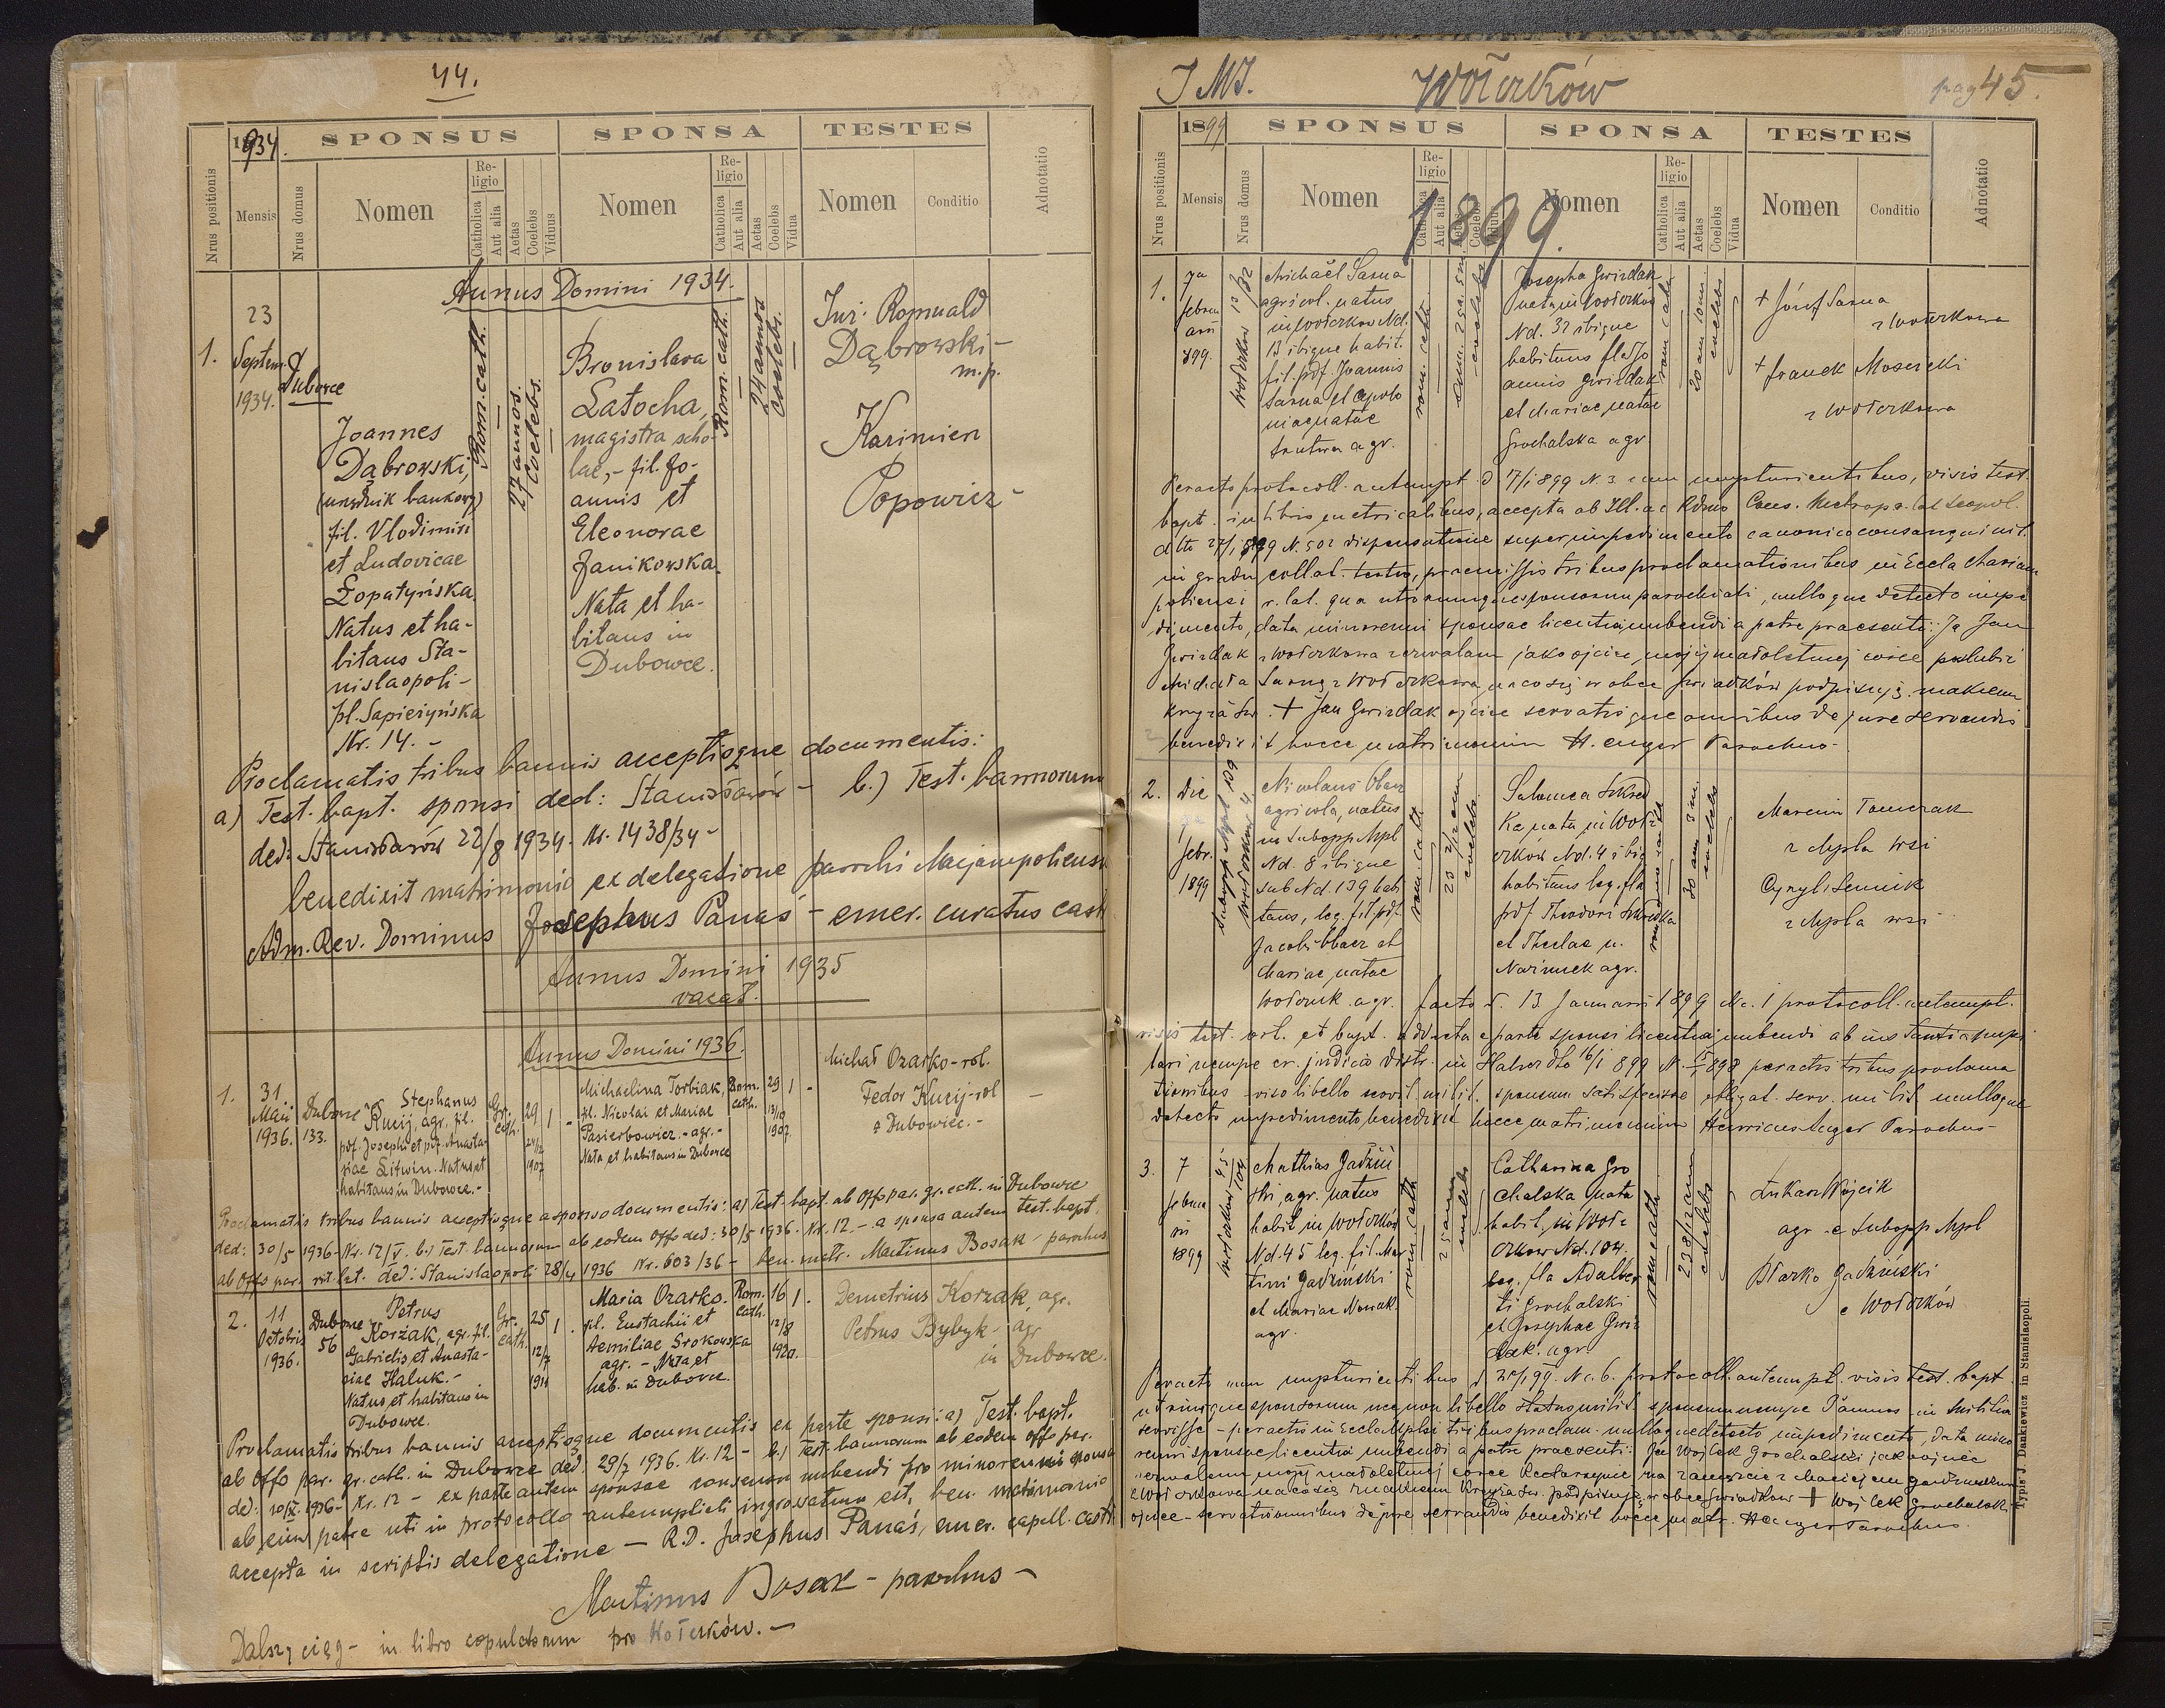 44.
1934.
SPONSUS
SPONSA
TESTES
Nrus positionis
Mensis
Nrus domus
Nomen
Religio
Catholica
Aut alia
Aetas
Coelebs
Viduus
Nomen
Religio
Catholica
Aut alia
Aetas
Coelebs
Vidua
Nomen
Conditio
Adnotatio
Annus Domini 1934.
1.
23
Septem.
1934.
Dubowce
Joannes
Dąbrowski,
(urzędnik bankowy)
fil. Vlodimiri
et Ludovicae
Łopatyńska.
Natus et ha-
bitans Sta-
nislaopoli-
pl. Sapieżyńska
Nr. 14. -
Rom. cath.
27 annos.
Coelebs.
Bronislava
Latocha,
magistra scho-
lae,- fil. Jo-
annis et
Eleonorae
Janikowska.
Nata et ha-
bitans in
Dubowce.
Rom. cath.
24 annos
Coelebs.
Romuald
Dąbrowski-
m.p.
Kazimierz
Popowicz-
Proclamatis tribus bannis acceptisque documentis:
a) Test. bapt. sponsi ded: Stanisławów - b.) Test. bannorum
ded: Stanisławów 22/8 1934. Nr. 1438/34-
benedixit matrimonio ex delegatione parochi
Adm. Rev. Dominus Josephus Panaś - emer. curatus
Annus Domini 1935
vacat.
Annus Domini 1936.
1.
31
Maii
1936.
Dubowce
133.
Stephanus
Kucij, agr., fil.
pdf. Josephi et pdf. Anasta-
siae Litwin. Natus et
habitans in Dubowce.-
Gr. cath.
29
1907
Michaelina Torbiak,
fil. Nicolai et Mariae
Pasierbowicz.- agr.-
Nata et habitans in Dubowce
Rom. cath.
29
1907.
Michał Ozarko-rol.
Fedor Kucij-rol
z Dubowiec.-
Proclamatis tribus bannis acceptisque a sponso documentis: a) Test. bapt. ab Offo par. gr. cath. in Dubowce
ded: 30/5 1936-Nr. 12/V. b.) Test. bannorum ab eodem Offo ded: 30/5 1936. Nr. 12.- a sponsa autem test. bapt.
ab Offo par. rit. lat. ded: Stanislaopoli 1936 Nr. 603/36 - ben. matr. Martinus Bosak - parochus
2.
11
Octobris
1936.
Dubowce
56
Petrus
Korżak, agr. fil.
Gabrielis et Anasta-
siae Haluk.-
Natus et habitans in
Dubowce.
Gr. cath.
25
12/7
1911
Maria Ozarko.
fil. Eustachii et
Aemiliae Srokowska
agr. - Nata et
hab. in Dubowce.
Rom. cath.
16
12/8
1920.
Demetrius Korzak, agr.
Petrus Bybyk- agr
in Dubowce.
Proclamatis tribus bannis acceptisque documentis ex parte sponsi: a) Test. bapt.
ab Offo par. gr. cath. in Dubowce ded. 29/7 1936. Nr. 12 - b.) Test. bannorum ab eodem offo par.
ded: 1936- Nr. 12 - ex parte autem sponsae consensu nubendi pro minorenni sponsa
ab eius patre uti in protocollo antenuptiali ingrossatum est, ben. matrimonio
accepta in scriptis delegatione - R.D. Josephus Panaś, emer. capell.
Martinus Bosak - parochus -
Dalszy ciąg - in libro copulatorum pro Wołczków. -
J M J.
Wołczków
pag 45.
1899
SPONSUS
SPONSA
TESTES
Nrus positionis
Mensis
Nrus domus
Nomen
Religio
Catholica
Aut alia
Coelebs
Nomen
Religio
Catholica
Aut alia
Aetas
Coelebs
Vidua
Nomen
Conditio
Adnotatio
1899.
1.
7a
febru
arii
899.
Wołczków 13/32
Michaël Sarna
agricol. natus
in Wołczków Nd.
13 ibique habit.
fil. pdf. Joannis
Sarna et Apolo
niae natae
agr.
rom. cath.
coelebs
Josepha Gwizdak
nata in Wołczków
Nd. 32 ibique
habitans
annis Gwizdak
et Mariae natae
Grochalska agr
rom cath.
20 an 10 m.
coelebs
+ Józef Sarna
z Wołczkowa
+ Franek
z Wołczkowa
Peracto protocoll. antenupt. d 17/1 899 N. 3 cum nupturientibus, visis test.
bapt. in libris metricalibus, accepta ab Ill. ac Rdmo Cons. Metropo. lat Leopol.
dto 27/1 899 N. 502 dispensatione super impedimento canonico consanguinit.
in gradu collat. tertio, praemissis tribus proclamationibus in Eccla Mariam
poliensi r. lat. qua utrorumque sponsorum parochiali, nulloque detecto impe
dimento, data minorenni sponsae licentia nubendi a patre praesenti: Ja Jan
Gwizdak z Wołczkowa zezwalam jako ojciec mojej małoletniej córce poslubić
Michała Sarnę z Wołczkowa, na co się wobec świadków podpisuję znakiem
krzyża św. + Jan Gwizdak ojciec servatisque omnibus de jure servandis
benedixit hocce matrimonium H. Parochus-
2.
Die
febr.
1899
Wołczków 4
Nicolaus
agricola, natus
in Mpl
Nd. 8 ibique
sub Nd. 139 habi
tans, leg. fil. pdf.
Jacobi et
Mariae natae
agr.
rom. cath
coelebs
Salomea
ka nata in Wołcz
czków Nd. 4 ibiq
habitans leg. fla
pdf. Theodori
et Theclae n.
agr.
30 an 3 m.
coelebs
Marcin Tomczak
z Mpla wsi
Cyryl
z Mpla wsi
facto d. 13 Januarii 1899 No. 1 protocoll. antenupt.
visis test. ort. et bapt. adducta e parte sponsi licentia nubendi ab
nempe judicio distr. in dto 16/1 899 peractis tribus proclama
tionibus viso libello milit. sponsum obligat. serv. milit nulloque
detecto impedimento, benedixit hocce matrimonium Henricus Parochus-
3.
7
februa
rii
1899
Wołczków 45/104
Mathias Gadziń
ski agr. natus
habit in Wołczków
Nd. 45 leg. fil. Mar
tini Gadziński
et Mariae Nowak.
agr.
rom. cath
25 ann
coelebs
Catharina Gro
chalska nata
habit. in Woł
czków Nd. 104.
leg. fla Adalber
ti Grochalski
et Josephae Gwiz
dak. agr.
rom cath.
coelebs
Łukasz Wójcik
agr. e Mpl
Gadziński
e Wołczków
Peracto cum nupturientibus No. 6. protocoll. antenupt. visis test. bapt
utriusque sponsorum necnon libello status milit. sponsum nempe in militia
- peractis in Eccla tribus proclam. nulloque detecto impedimento, data mino
renni sponsae licentia nubendi a patre praesenti: Ja Wojtek Grochalski jako ojciec
zezwalam mojej małoletniej córce Katarzynie na zamęście z Maciejem Gadzińskim
z Wołczkowa na co się znakiem krzyża św. podpisuję wobec świadków + Wojtek Grochalski
ojciec - servatis omnibus de jure servandis benedixit hocce matr. Parochus.
Typis J. Dankiewicz in Stanislaopoli.